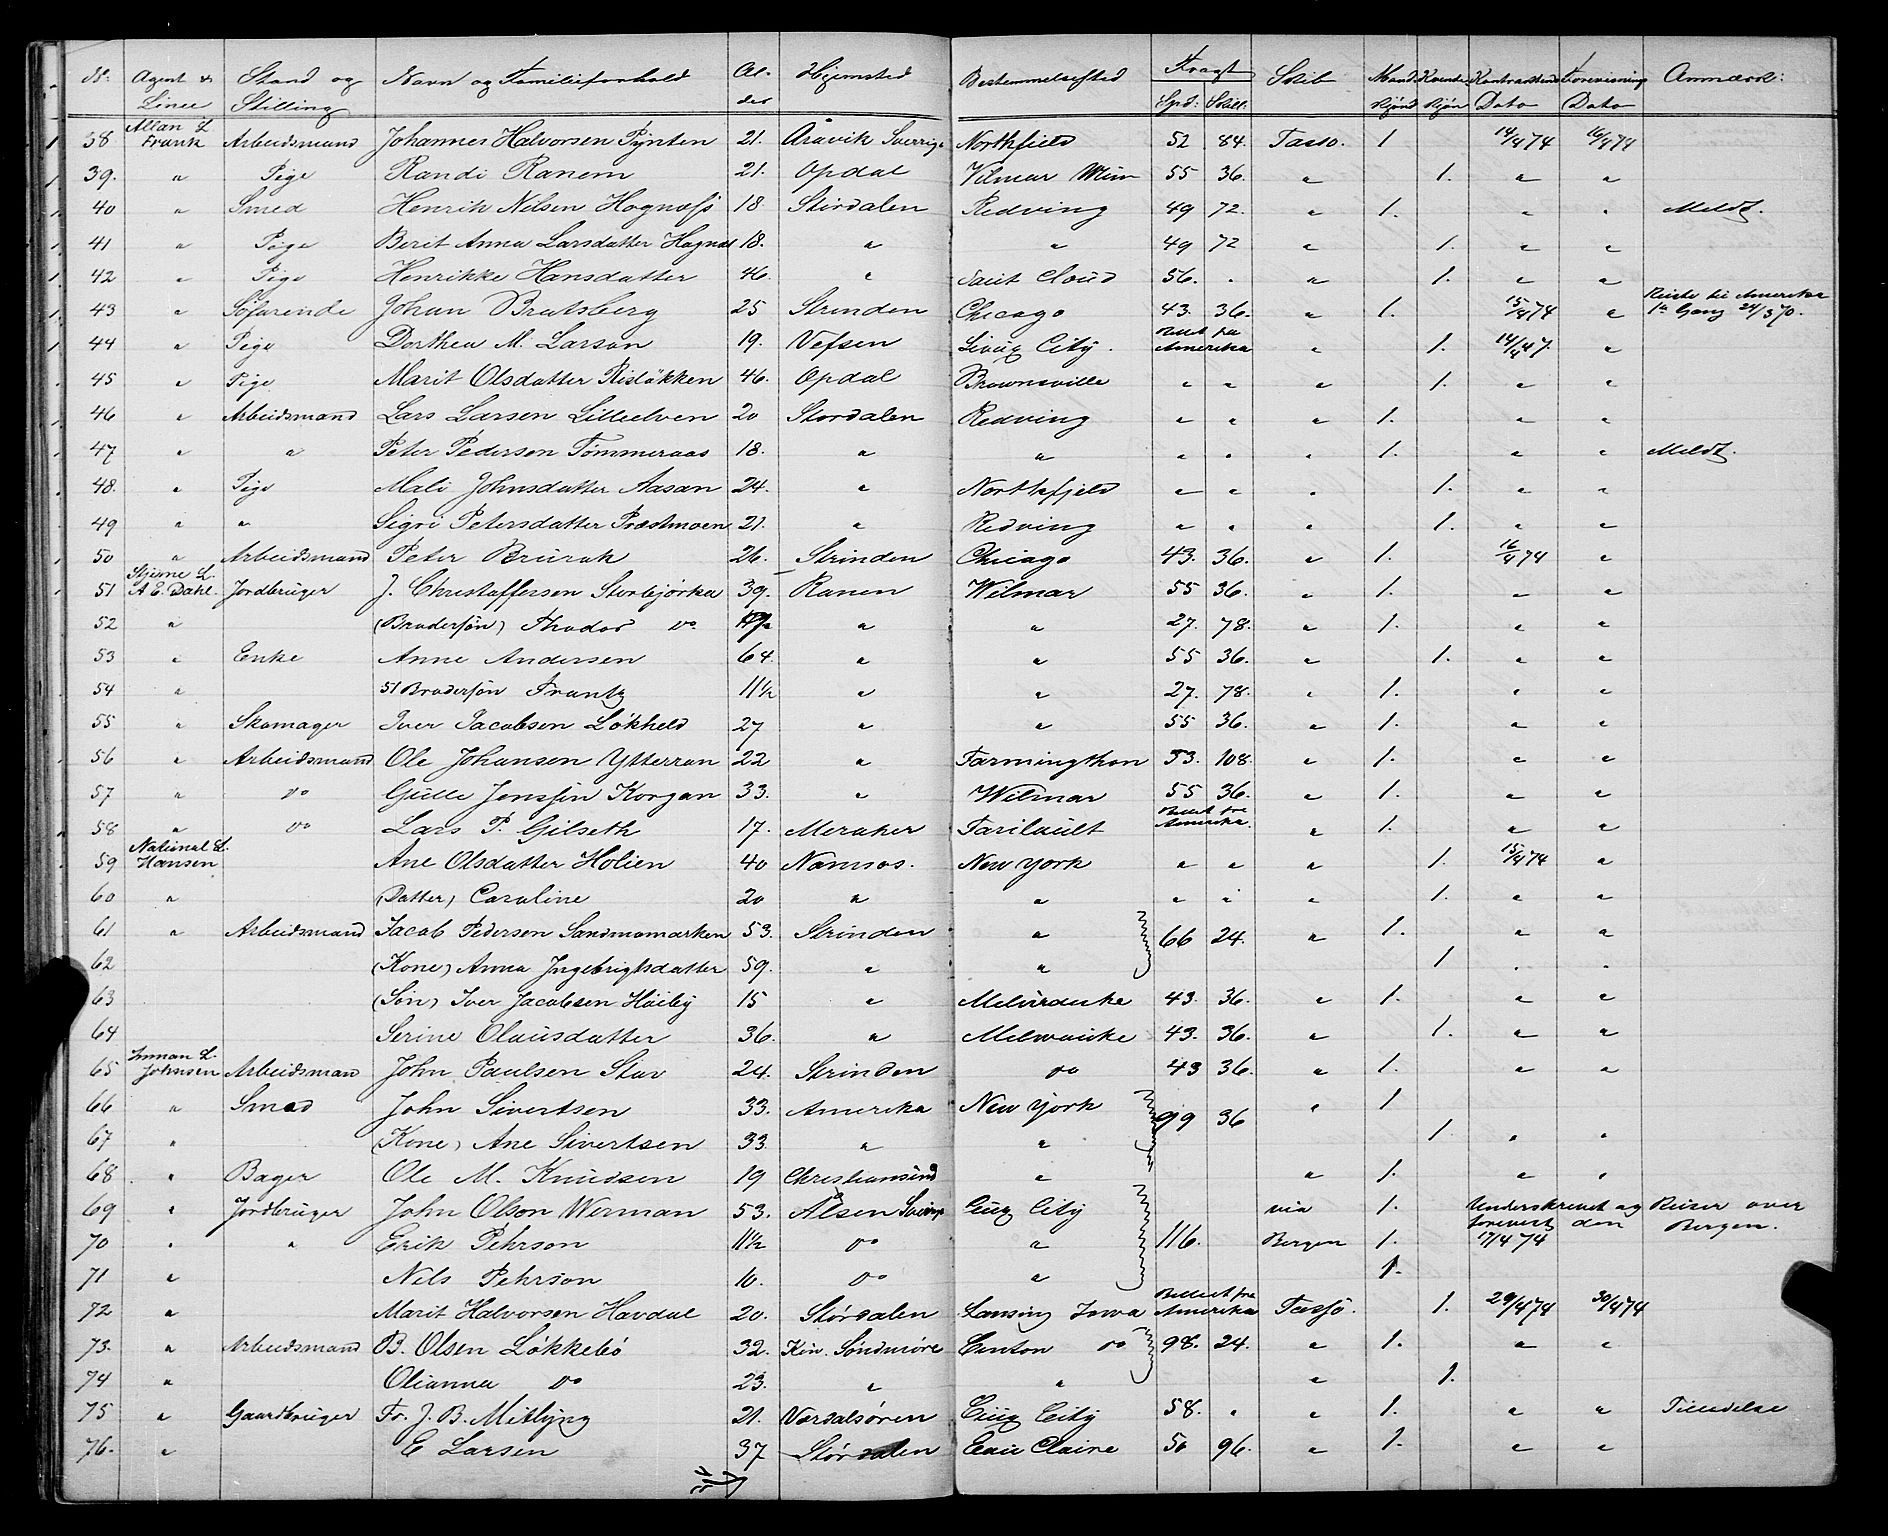 No: Agent & Linie Stand og Stilling Navn og Familieforhold Al-der Hjemsted Bestemmelsessted Fragt Spd: Skill: Skib Mand-kjøn Kvinde-kjøn Kontraktens Dato Forevisning Dato Anmærk:
38 Allan L. Frank Arbeidsmand Johannes Halvorsen Pynten 21. Aravik Sverrige Northfield 52 84. Tasso. 1 14/4 74 16/4 74
39. " Pige Randi Ranem 21. Opdal Vilmar Minn 55 36. " 1. " "
40 " Smed Henrik Nilsen Hognæss 18. Stirdalen Redving 49 72. " 1. " " Meldt.
41 " Pige Berit Anna Larsdatter Hognæs 18. " " 49 72 " 1. " "
42 " Pige Henrikke Hansdatter 46. " Saint Cloud 56. . " 1. " "
43 " Søfarende Johan Bratsberg 25 Strinden Chicago 43. 36. " 1. 15/4 74 " Reiste til Amerika 1ste Gang 24/3 70.
44 " Pige Dorthea M. Larson 19. Vefsen Sioux City. Billet fra Amerika " 1. 14/4 47. "
45 " Pige Marit Olsdatter Risløkken 46. Opdal Brownsville " " " 1. " "
46 " Arbeidsmand Lars Larsen Lilleelven 20 Stordalen Redving " " " 1. " "
47 " " Peter Pedersen Tømmeraas 18. " " " . . 1. " " Meldt.
48. " Pige Mali Johnsdatter Aasan 24. " Northfjeld " " " 1. " "
49 " " Sigri Petersdatter Præstmoen 21. " Redving " " " 1. " "
50 " Arbeidsmand Peter Brurak 26. Strinden Chicago 43. 36. " 1. 16/4 74 "
51 Stjerne L. A E. Dahl. Jordbruger J. Christoffersen Storbjørka 39. Ranen Wilmar 55 36. " 1. " "
52 " (Brodersøn) Thodor do " " 27. 78. " 1. " "
53 " Enke Anne Andersen 64. " " 55 36. " 1. " "
54 " 51 Brodersøn Frantz 11½ " " 27. 78. " 1. " "
55 " Skomager Iver Jacobsen Løkheld 27 " " 55 36. " 1. " "
56 " Arbeidsmand Ole Johansen Ytterran 22 " Farmingthon 53. 108. " 1. " "
57 " do Gulle Jenssøn Korgan 33. " Wilmar 55 36. " 1. " "
58 " do Lars P. Gilseth 17. Meraker Farilault Billet fra Amerika. " 1. " "
59 National L. Hansen Ane Olsdatter Holien 40 Namsos. New York " " " 1. 15/4 74 "
60 " (Datter) Caroline 20 " " " " " 1. " "
61 " Arbeidsmand Jacob Pedersen Sandmomarken 53. Strinden " 66 24. " 1. " "
62 (Kone) Anna Ingebrigtsdatter 59. " " 1 . .
63 (Søn) Iver Jacobsen Høiby 15 " Melvrauke 43. 36. " 1. " "
64 Serine Olausdatter 36. " Melwauke 43. 36. " 1. " "
65 Inman L. Johnsen Arbeidsman John Paulsen Stav 24. Strinden do 43 36. " 1. " "
66 " Smed John Sivertsen 33. Amerika New York 99 36 " 1
67 " (Kone) Ane Sivertsen 33. " " 1. " "
68 " Bager Ole M. Knudsen 19 Christiansund " " 1. " "
69 " Jordbruger John Olson Werman 53. Alsen Sverige Ciux City via 1. Underskrevet og forevist den Reiser over Bergen.
70 " " Erik Pehrson 11½ do " 116. Bergen 1. 17/4 74
71 " Nels Pehrson 10. do " 1.
72 " Marit Halvorsen Havdal 20. Størdalen Lansing Iowa Billet fra Amerika Tassø. 1. 29/4 74 30/4 74
73. " Arbeidsmand B. Olsen Løkkebø 32. Kin. Søndmøre Canton do 98. 24. " 1. " "
74 " Olianna do 23. " " " 1.
75 " Gaardbruger Fr. J. B. Mitlyng 21. Værdalsøren Ciux City 58. " " 1. " " Tiendelse
76. " E Larsen 37 Størdalen Eau Claire 50 96. " 1. " "